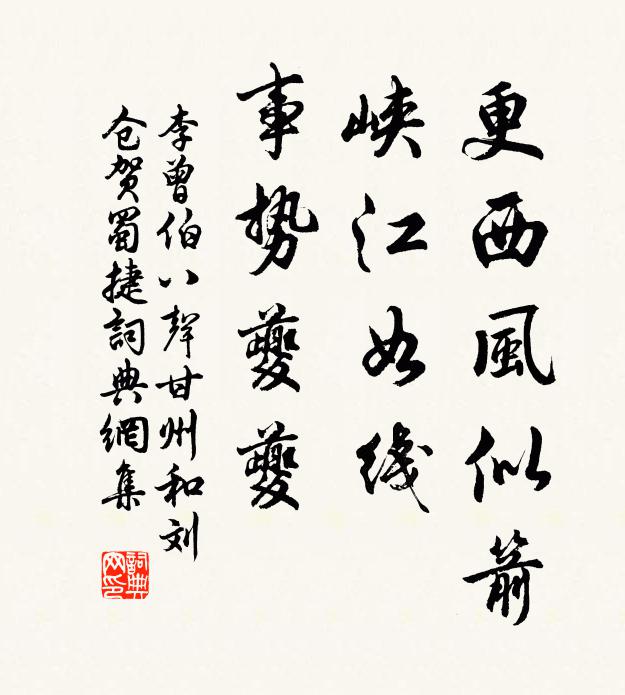 更西風似箭
峽江如线
事势夔夔
李曾伯八聲甘州和刘
仓贺蜀捷詞典網集
詞典
网印